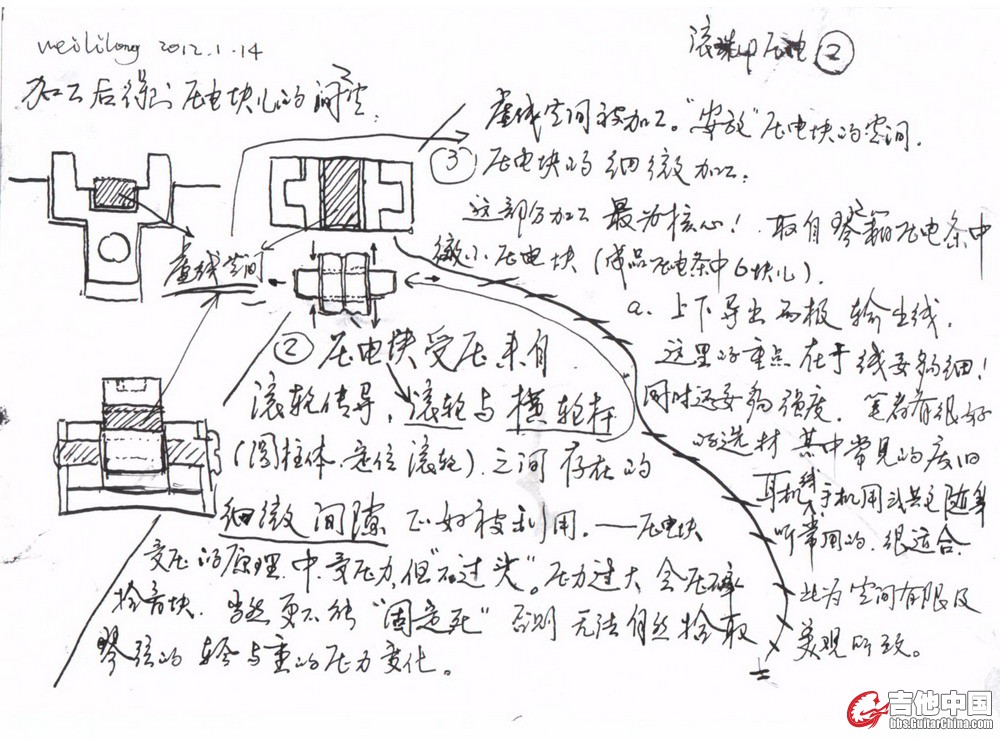 weililong 2012.1.14
滚珠 压电 ②
加工后得到压电块儿的间空.
虚线空间被加工。"安放"压电块的空间.
③ 压电块的细微加工.
这部分加工最为核心! 取自琴 压电条中
微小压电块(成品压电条中6块儿).
a. 上下导出两极输出线.
这里的重点在于线要够细!
同时还要够强度. 笔者有很好
的选材 其中常见的废旧
耳机线 手机用 随身
听常用的. 很适合.
此为空间有限及
美观所致。
虚线空间
② 压电块受压来自
滚轮传导. 滚轮与横轮杆
(圆柱体.定位滚轮).之间存在的
细微间隙 正好被利用.——压电块
受压的原理.中.受压力但"不过头"。压力过大会压碎
拾音块. 当然更不能"固定死"否则无法自然拾取
琴弦的轻与重的压力变化。
吉他中国
bbs.GuitarChina.com